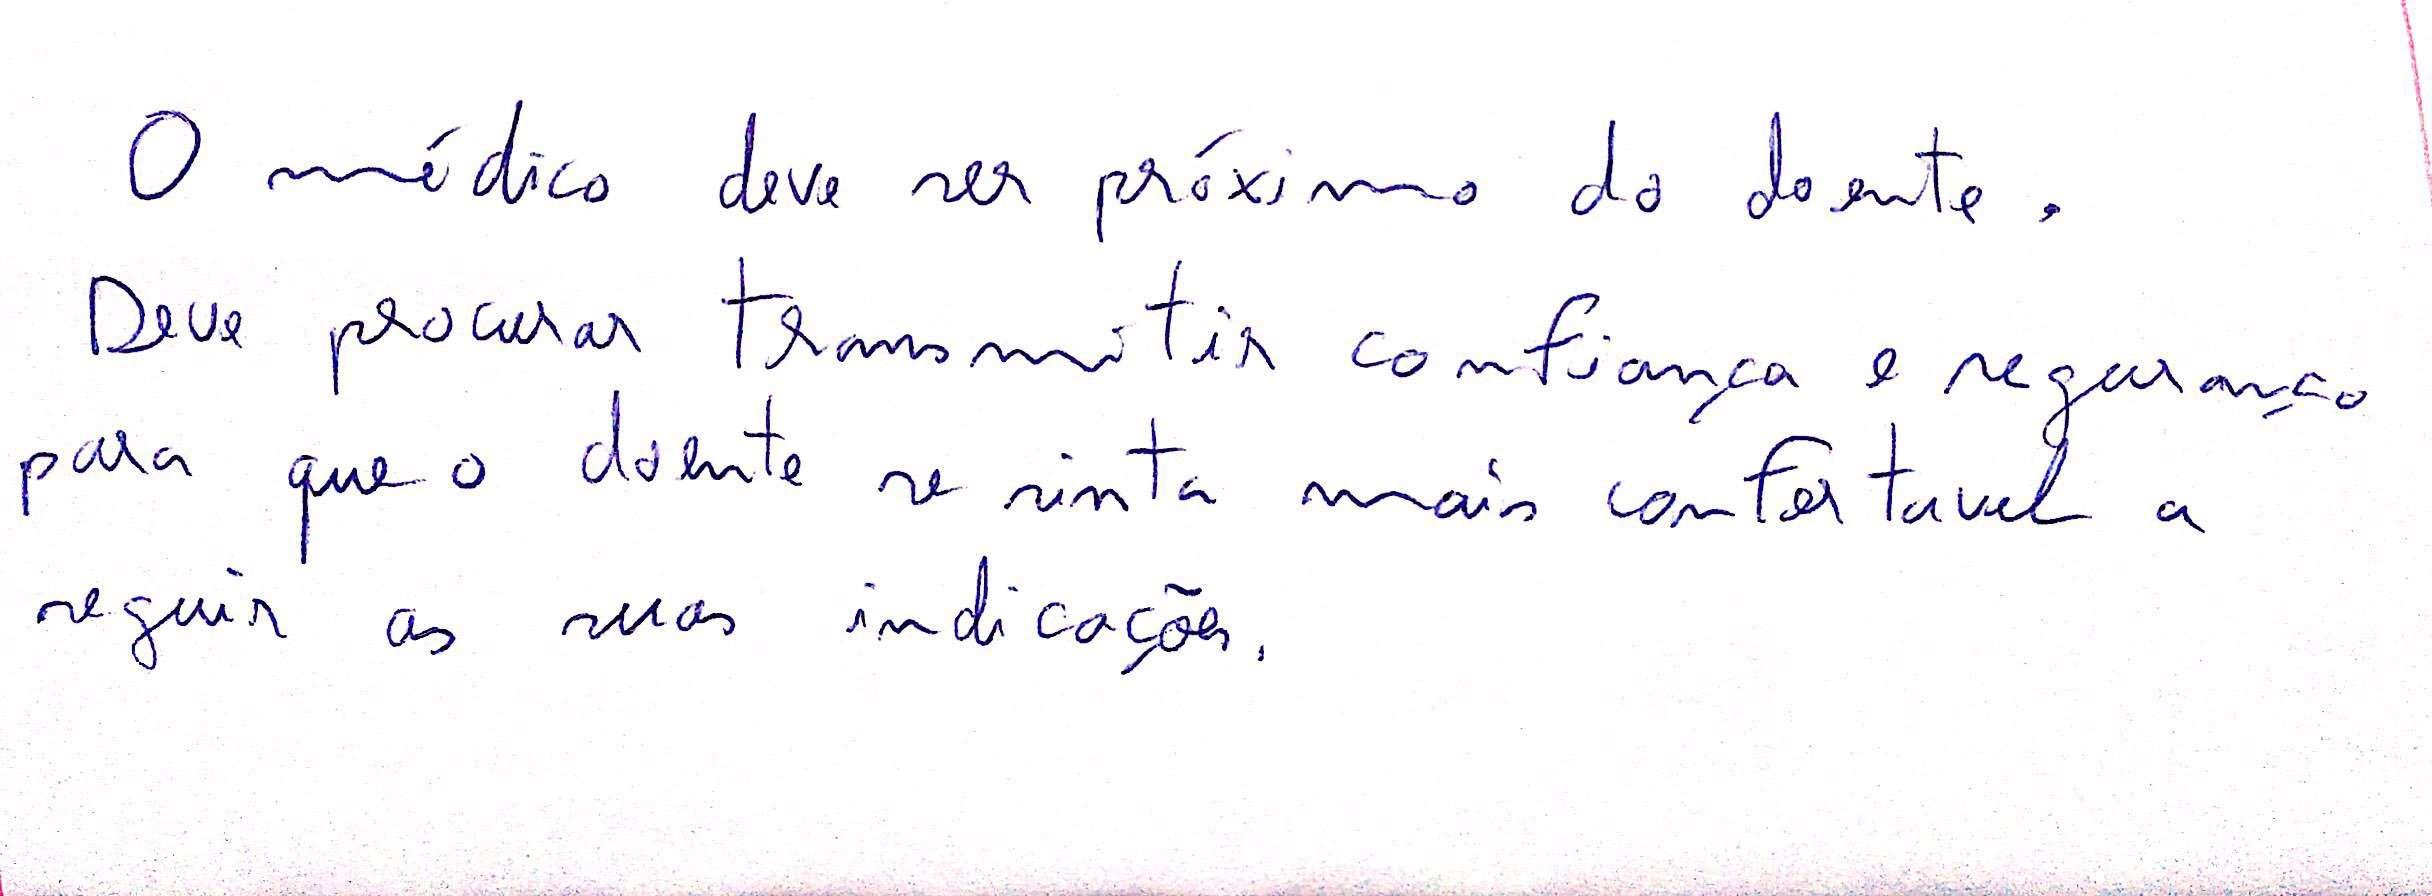 O médico deve ser próximo do doente.
Deve procurar transmitir confiança e segurança
para que o doente se sinta mais confortavel a
seguir as suas indicações.